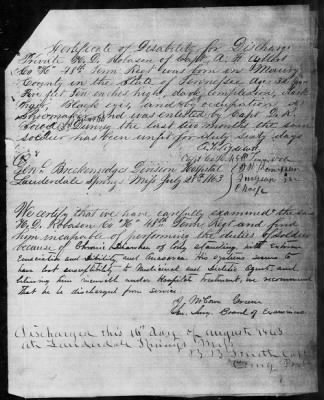 Certificate of Disability for Discharge
Private W. D. Robason of Capt. A.
Co "K" 48th Tenn Regt was born in Maury
County in the State of Tennessee age
Five feet Ten inches high, dark complexion, dark
hair, Black eyes, and by occupation a
and was enlisted by Capt.
During the last two months the said
soldier has been unfit for duty sixty days
Gen'l Breckenridges Division Hospital
Lauderdale Springs Miss July 28th 1863
We certify that we have carefully examined the said
W. D. Robason Co "K" 48th Tenn Regt and find
him incapable of performing the duties of a soldier
because of Chronic Diarrhea of long standing, with extreme
Emaciation and debility and Anasarca. His system seems to
have lost susceptibility to Medicinal and Dietetic Agents, and
believing him incurable under Hospital Treatment, we recommend
that he be discharged from service
Greene
Board of Examiners
Discharged this 16th day of August 1863
at Lauderdale Springs Miss
B. B. Smith
Comg Post